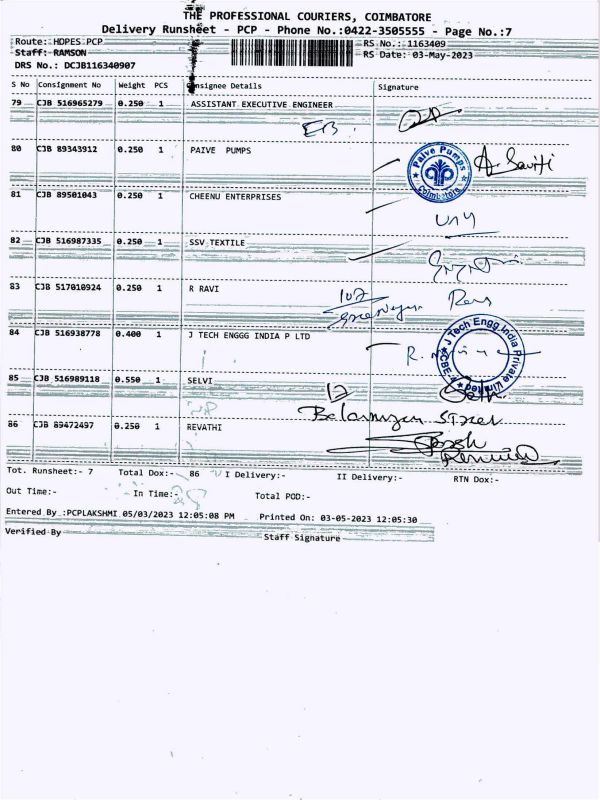 THE PROFESSIONAL COURIERS, COIMBATORE
Delivery Runsheet - PCP - Phone No.:0422-3505555 - Page No.:7
Route: HOPES PCP RS No.: 1163409
Staff: RAMSON RS Date: 03-May-2023
DRS No.: DCJB116340907
S No Consignment No Weight PCS Consignee Details Signature
79 CJB 516965279 0.250 1 ASSISTANT EXECUTIVE ENGINEER
EB
80 CJB 89343912 0.250 1 PAIVE PUMPS
Paive Pumps Coimbatore
81 CJB 89501043 0.250 1 CHEENU ENTERPRISES
82 CJB 516987335 0.250 1 SSV TEXTILE
83 CJB 517010924 0.250 1 R RAVI
107
84 CJB 516938778 0.400 1 J TECH ENGGG INDIA P LTD
J Tech Engg.India Private Limited CBE-4
85 CJB 516989118 0.550 1 SELVI
12
Street
86 CJB 89472497 0.250 1 REVATHI
Tot. Runsheet:- 7 Total Dox:- 86 I Delivery:- II Delivery:- RTN Dox:-
Out Time:- In Time:- Total POD:-
Entered By :PCPLAKSHMI 05/03/2023 12:05:08 PM Printed On: 03-05-2023 12:05:30
Verified By Staff Signature